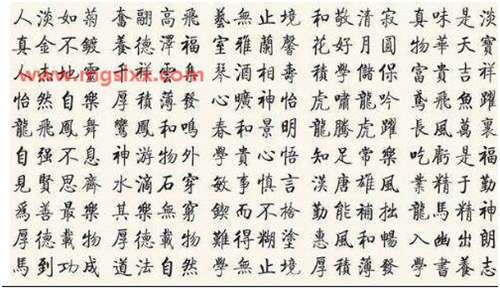 人淡如菊 奮翮高飛 藝無止境 和敬清寂 真味是淡
真金不鍍 養德澤福 室雅蘭馨 花好月圓 物華天寶
人地靈 身 琴酒相壽 積學儲保 富貴吉祥
www.mgsixx.com
怡然自樂 厚積薄發 心曠神怡 虎嘯龍吟 鳶飛魚躍
龍飛鳳舞 鸞鳳和鳴 春和景明 龍騰虎躍 長風萬裏
自强不息 神游物外 學貴心悟 知足常樂 吃虧是福
見賢思齊 水滴石穿 敏事慎言 漢唐雄風 業精于勤
爲善最樂 其樂無窮 鍥而不捨 勤能補拙 龍馬精神
厚德載物 厚德載物 難得糊塗 惠風和暢 入幽出朗
馬到功成 道法自然 學無止境 厚積薄發 學書養志